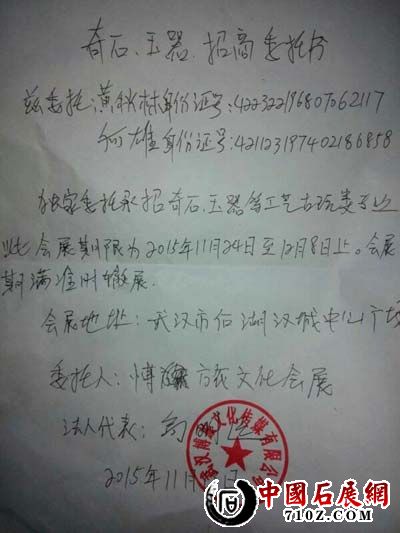 奇石、玉器、招商委托书
兹委托:黄秋林身份证号:422322196807062117
何雄身份证号:421123197402186858
独家委托承招奇石、玉器等工艺古玩类
此会展期限为2015年11月24日至12月8日止。会展
期满准时撤展.
会展地址:武汉市后湖汉城中心广场
委托人:博 方式文化会展
法人代表:
文化传媒有限公司
2015年11月
中國石展網
7102.COM